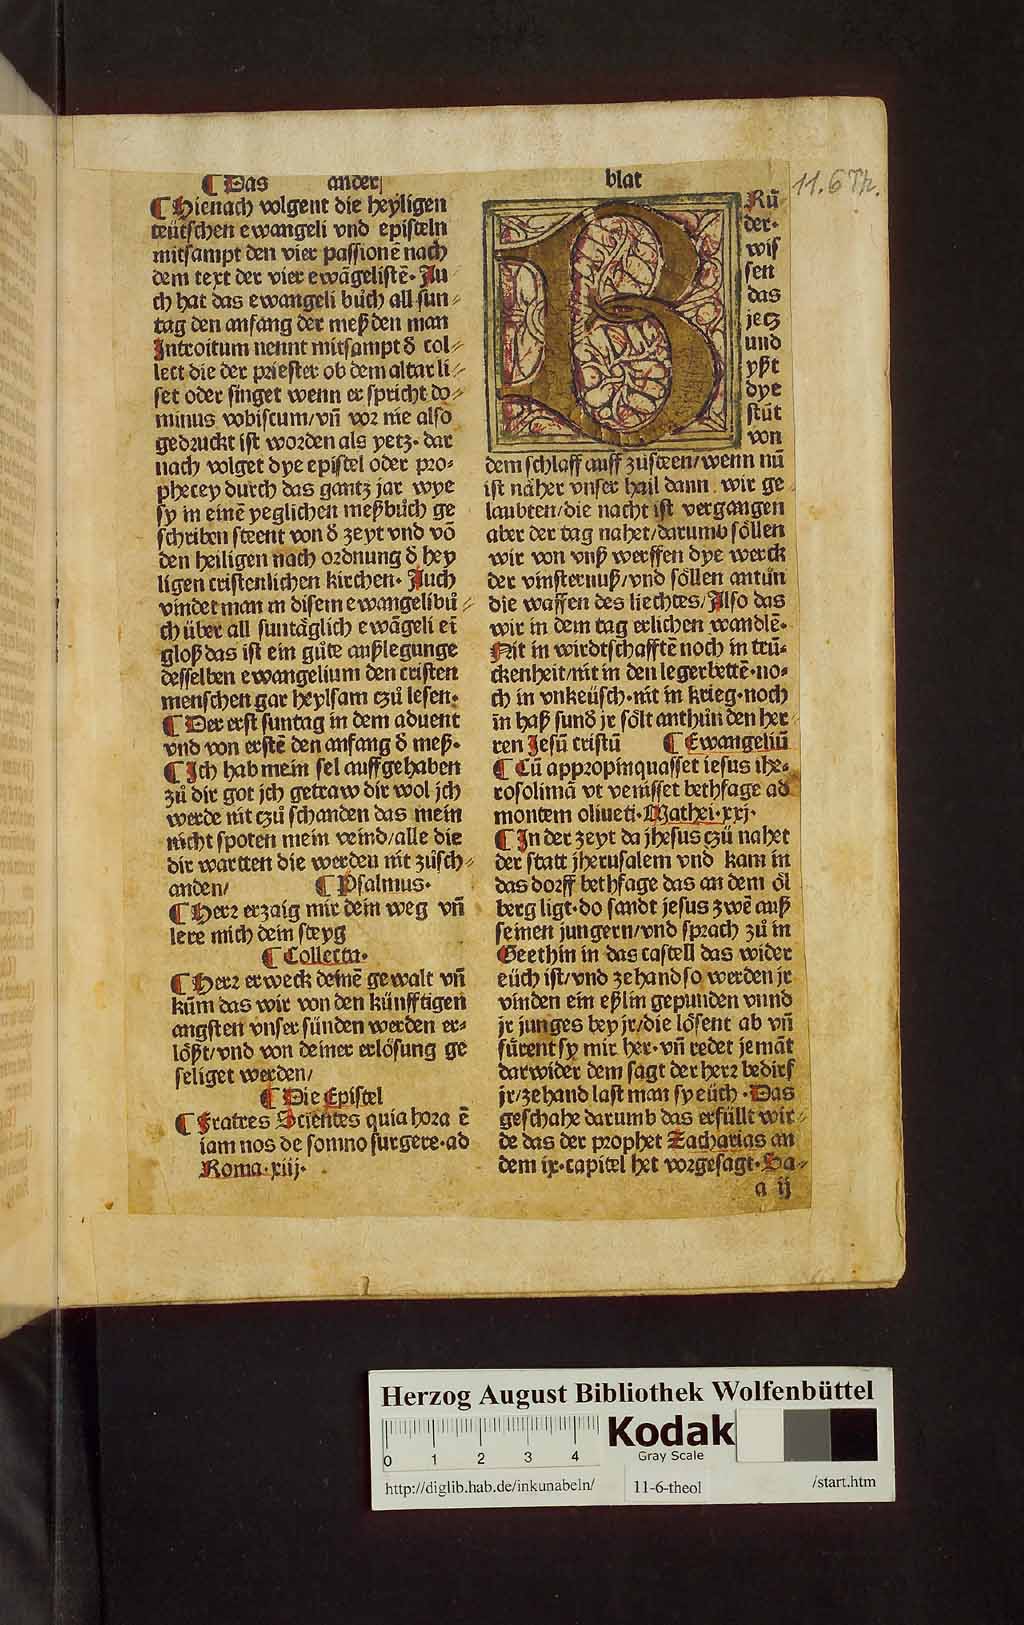 ¶ Das ander blat
11.6 Th.
¶ Hienach volgent die heyligen
teütschen ewangeli vnd episteln
mitsampt den vier passionē nach
dem text der vier ewāgelistē. Au
ch hat das ewangeli bůch all sun⸗
tag den anfang der meß den man
Introitum nennt mitsampt ð col⸗
lect die der priester ob dem altar li⸗
set oder singet wenn er spricht do⸗
minus vobiscum/vn̄ vor nie also
gedruckt ist worden als yetz. dar
nach volget dye epistel oder pro⸗
phecey durch das gantz jar wye
sy in einē yeglichen meßbůch ge
schriben steent von ð zeyt vnd vō
den heiligen nach ordnung ð hey
ligen cristenlichen kirchen. Auch
vindet man in disem ewangelibů⸗
ch über all suntäglich ewāgeli ein̄
gloß das ist ein gůte außlegunge
desselben ewangelium den cristen
menschen gar heylsam czů lesen.
¶ Der erst suntag in dem aduent
vnd von erstē den anfang ð meß.
¶ Ich hab mein sel auffgehaben
zů dir got jch getraw dir wol jch
werde nit czů schanden das mein
nicht spoten mein veind/alle die
dir wartten die werden nit zůsch⸗
anden/ ¶ Psalmus.
¶ Herr erzaig mir dein weg vn̄
lere mich dein steyg
¶ Collecta.
¶ Herr erweck deinē gewalt vn̄
kūm das wir von den künfftigen
angsten vnser sünden werden er⸗
lößt/vnd von deiner erlösung ge
seliget werden/
¶ Die Epistel
¶ Fratres Scientes quia hora ē
iam nos de somno surgere. ad
Roma. xiij.
BRů
der.
wis
sen
das
jetz
vnd
yßt
dye
stūt
von
dem schlaff auff zůsteen/wenn nū
ist näher vnser hail dann wir ge
laubten/die nacht ist vergangen
aber der tag nahet/darumb söllen
wir von vnß werffen dye werck
der vinsternuß/vnd söllen antůn
die waffen des liechtes/Also das
wir in dem tag erlichen wandlē.
Nit in wirdtschafftē noch in trū⸗
ckenheit/nit in den legerbettē. no⸗
ch in vnkeüsch. nit in krieg. noch
in haß sund jr sölt anthůn den her⸗
ren Jesū cristū ¶ Ewangeliū
¶ Cū appropinquasset iesus ihe⸗
rosolimā vt venisset bethfage ad
montem oliueti. Mathei. xxj.
¶ In der zeyt da jhesus czů nahet
der statt jherusalem vnd kam in
das dorff bethfage das an dem öl
berg ligt. do sandt jesus zwē auß
seinen jungern/vnd sprach zů in
Geethin in das castell das wider
eüch ist/vnd zehand so werden jr
vinden ein eßlin gepunden vnnd
jr junges bey jr/die lösent ab vn̄
fůrent sy mir her. vn̄ redet jemāt
darwider dem sagt der herr bedirf
jr/zehand last man sy eüch. Das
geschahe darumb das erfüllt wir⸗
de das der prophet Zacharias an
dem ix. capitel het vorgesagt. Sa⸗
a ij
Herzog August Bibliothek Wolfenbüttel
0 1 2 3 4
Kodak
Gray Scale
http://diglib.hab.de/inkunabeln/ 11-6-theol /start.htm